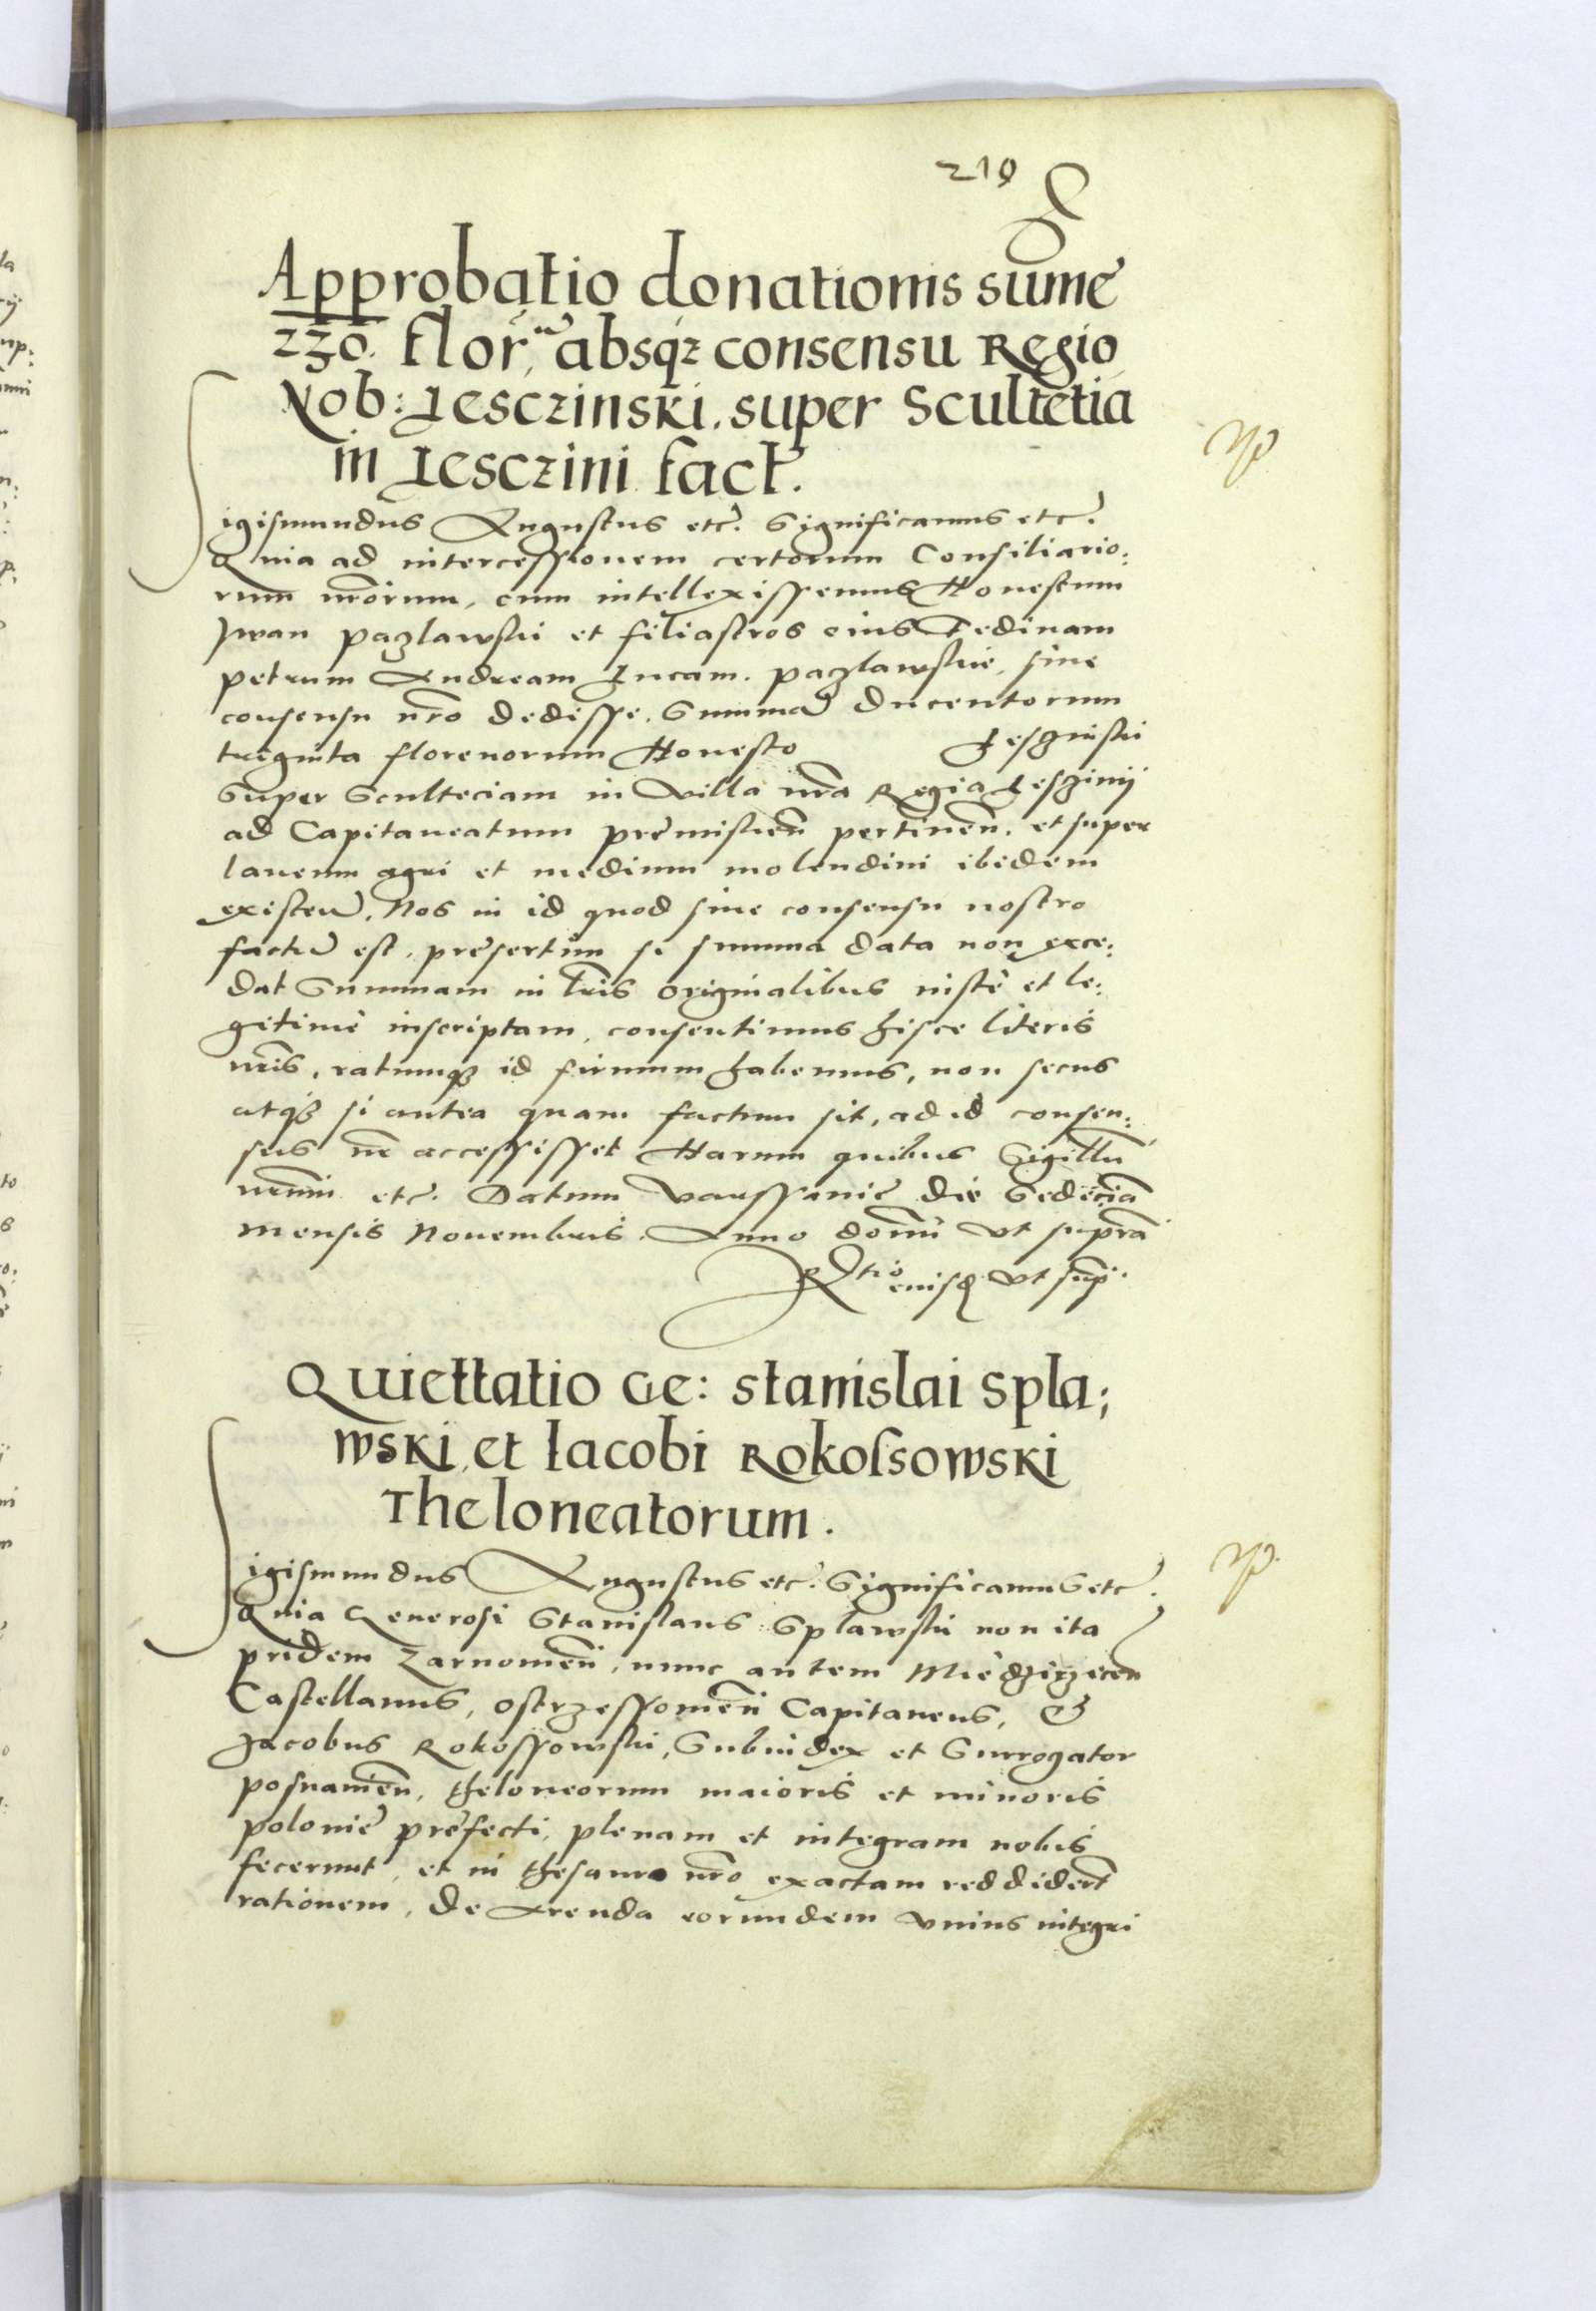 219
Approbatio donationis sumē
230. flor. absqz consensu Regio
Nob: Lesczinski. super Scultetia
in Lesczini fact.
Sigismundus Augustus etc. Significamus etc.
Quia ad intercessionem certorum Consiliario:
rum nrōrum, cum intellexissemus Honestum
Iwan pazlawski et filiastros eius Fedinam
petrum Andream Lucam. pazlawskie, sine
consensu nrō dedisse. Summā ducentorum
triginta florenorum Honesto Leszinski
Super Sculteciam in villa nrā Regia Leszinij
ad Capitaneatum premislien̄ pertinen̄. et super
laneum agri et medium molendini ibidem
existen̄. Nos in id quod sine consensu nostro
factū est, presertim si summa data non exce:
dat Summam in lrīs originalibus iustè et le:
gitimè inscriptam, consentimus hisce literis
nrīs, ratumqz id firmum habemus, non secus
atqz si antea quam factum sit, ad id consen:
sus nr̄ accessisset Harum quibus Sigillū
nrūm etc. Datum varssaniē die Sedecia
mensis Nouembris. Anno domī vt supra
R<sup>tio</sup> eiusd vt sup.
Quiettatio Ge: Stanislai Spla:
wski, et Iacobi Rokossowski
Theloneatorum.
Sigismundus Augustus etc. Significamus etc.
Quia Generosi Stanislaus Splawski non ita
pridem Zarnowien̄, nunc autem Miedzirzecen
Castellanus, ostrzessowien̄ Capitaneus, &
Jacobus Rokossowski, Subiudex et Surrogator
posnanien̄, theloneorum maioris et minoris
poloniē prefecti, plenam et integram nobis
fecerunt, et in thesauro nrō exactam reddidert̄
rationem, de Arenda eorundem vnius integri